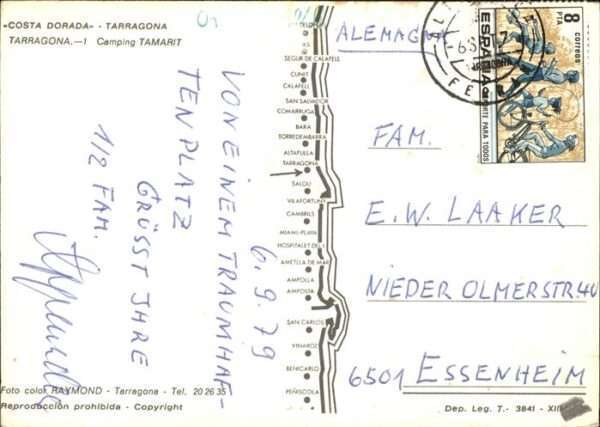 «COSTA DORADA» - TARRAGONA
TARRAGONA.—1 Camping TAMARIT
6.9.79
VON EINEM TRAUMHAF-
TEN PLATZ
GRÜSST IHRE
1/2 FAM.
Foto color RAYMOND - Tarragona - Tel. 20 26 35
Reproducción prohibida - Copyright
SEGUR DE CALAFELL
CUNIT
CALAFELL
SAN SALVADOR
COMARRUGA
BARA
TORREDEMBARRA
ALTAFULLA
TARRAGONA
SALOU
VILAFORTUNY
CAMBRILS
MIAMI-PLAYA
HOSPITALET DEL I.
AMETLLA DE MAR
AMPOLLA
AMPOSTA
SAN CARLOS
VINAROZ
BENICARLO
PEÑISCOLA
ALEMAGNA
FAM.
E.W. LAAKER
NIEDER OLMERSTR.40
6501 ESSENHEIM
Dep. Leg. T.- 3841 -
8
PTA
CORREOS
ESPAÑA
DEPORTE PARA TODOS